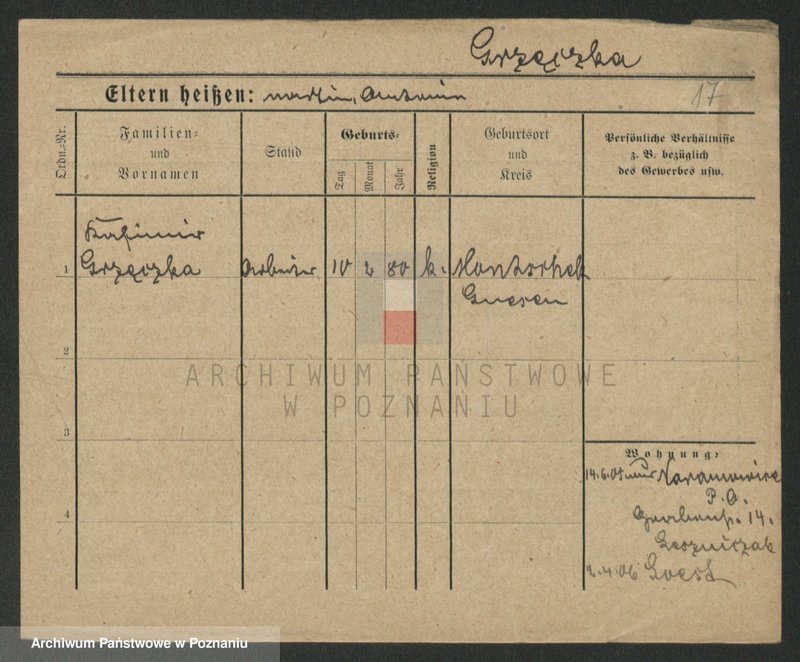 Grzęczka
Eltern heißen: Martin, Antonin
17
Ordn.-Nr.
Familien-
und
Vornamen
Stand
Geburts-
Tag
Monat
Jahr
Religion
Geburtsort
und
Kreis
Persönliche Verhältnisse
z. B. bezüglich
des Gewerbes usw.
Kasimir
1 Grzęczka Arbeiter 10 2 80 k.
Gnesen
2
ARCHIWUM PAŃSTWOWE
W POZNANIU
3
Wohnung:
14.6.05 Naramowice
P. O.
4
14.
2.4.06 Soest
Archiwum Państwowe w Poznaniu